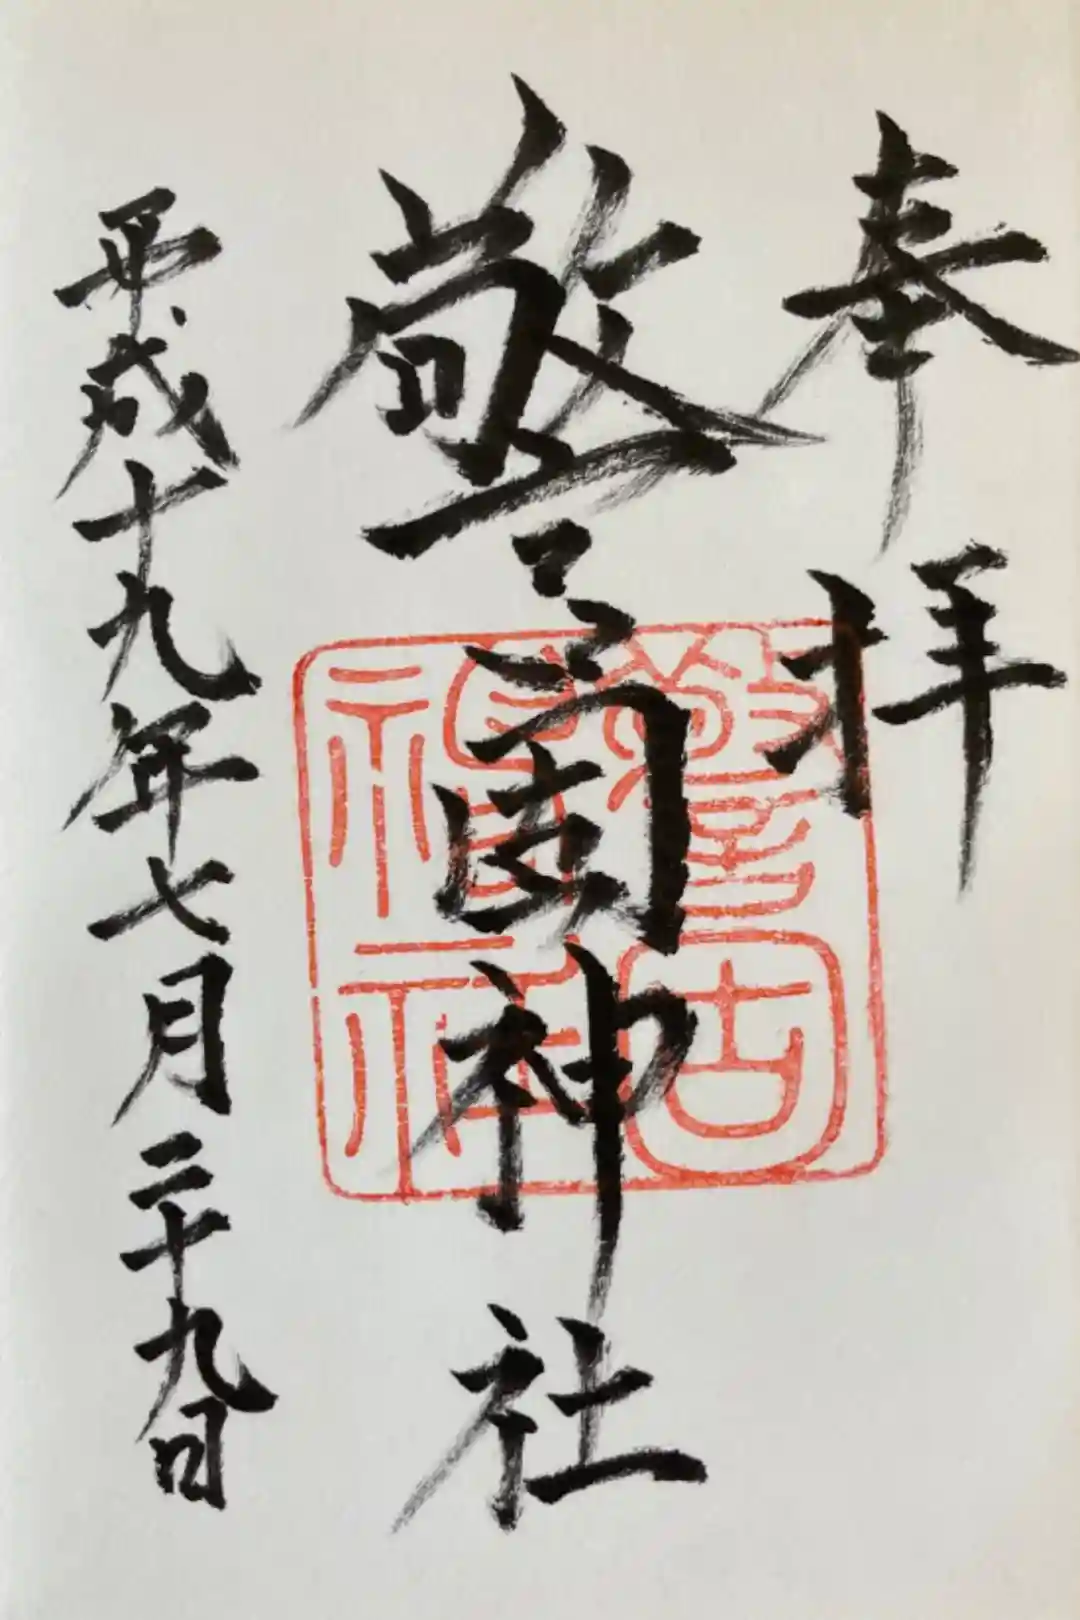 奉拝
警固神社
平成十九年七月二十九日
警固神社